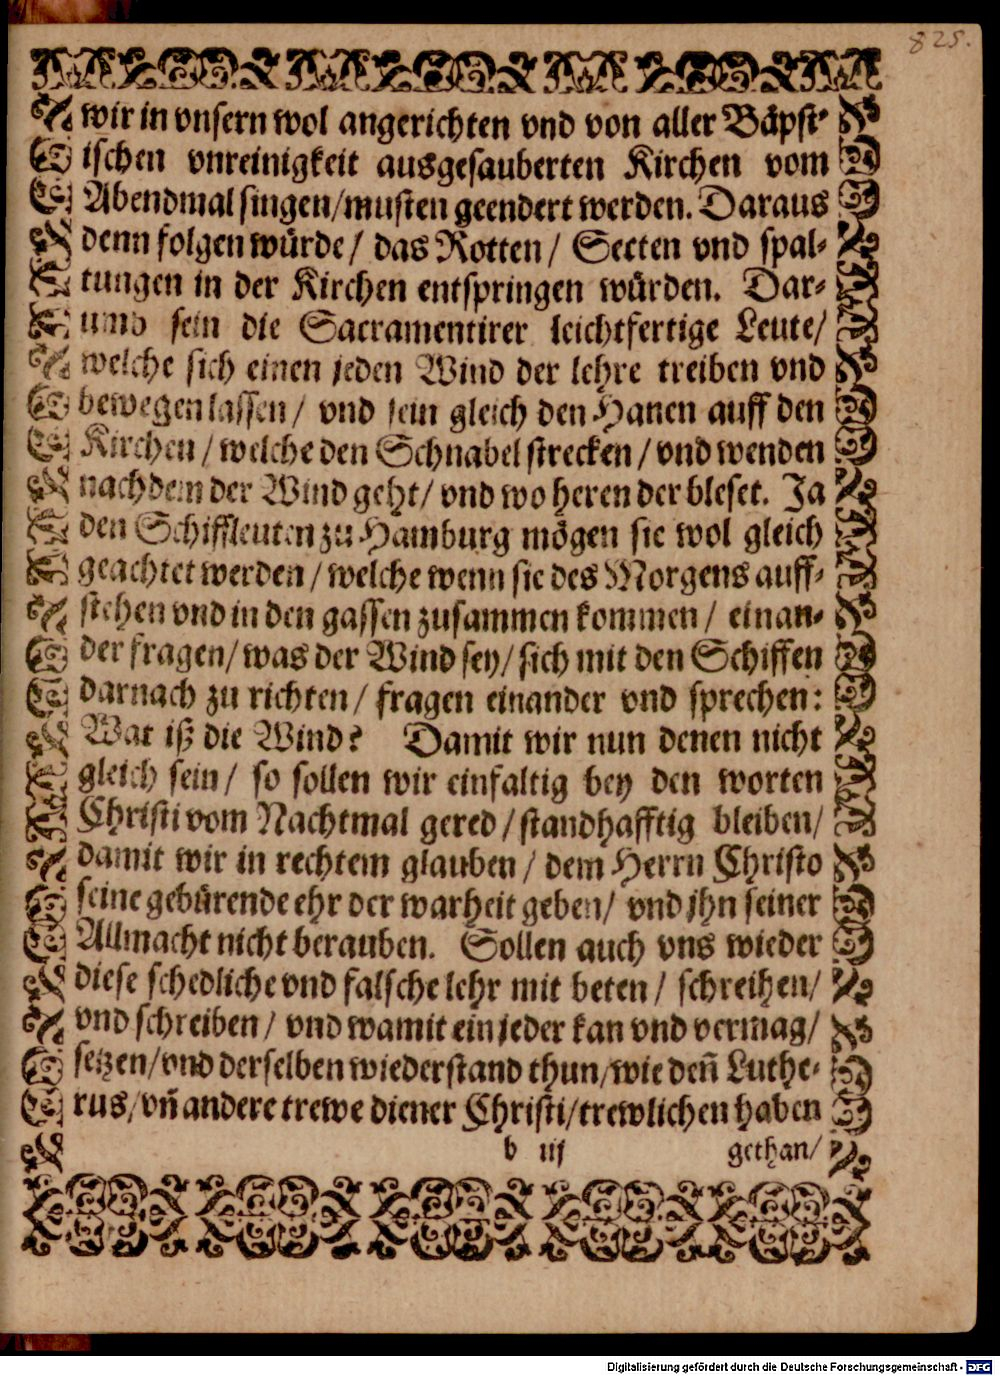 825.
wir in vnsern wol angerichten vnd von aller Bäpst-
ischen vnreinigkeit ausgesauberten Kirchen vom
Abendmal singen/musten geendert werden. Daraus
denn folgen würde/ das Rotten/ Secten vnd spal-
tungen in der Kirchen entspringen würden. Dar-
umb sein die Sacramentirer leichtfertige Leute/
welche sich einen jeden Wind der lehre treiben vnd
bewegen lassen/ vnd sein gleich den Hanen auff den
Kirchen/welche den Schnabel strecken/vnd wenden
nach dem der Wind geht/ vnd wo heren der bleset. Ja
den Schiffleuten zu Hamburg mögen sie wol gleich
geachtet werden/welche wenn sie des Morgens auff-
stehen vnd in den gassen zusammen kommen/ einan-
der fragen/was der Wind sey/sich mit den Schiffen
darnach zu richten/ fragen einander vnd sprechen:
Wat iß die Wind? Damit wir nun denen nicht
gleich sein/ so sollen wir einfaltig bey den worten
Christi vom Nachtmal gered/standhafftig bleiben/
damit wir in rechtem glauben/ dem Herrn Christo
seine gebürende ehr der warheit geben/ vnd jhn seiner
Allmacht nicht berauben. Sollen auch vns wieder
diese schedliche vnd falsche lehr mit beten/ schreihen/
vnd schreiben/ vnd wamit ein jeder kan vnd vermag/
setzen/vnd derselben wiederstand thun/wie den̄ Luthe-
rus/vn̄ andere trewe diener Christi/trewlichen haben
b iij gethan/
Digitalisierung gefördert durch die Deutsche Forschungsgemeinschaft - DFG